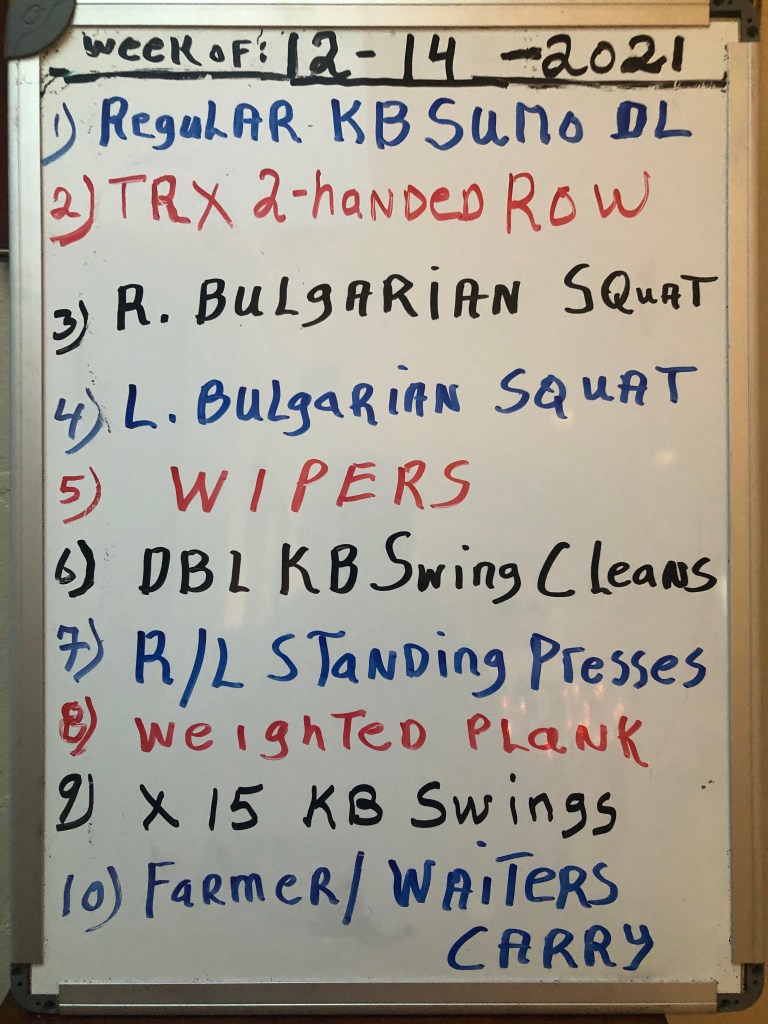 WEEK OF: 12-14-2021
1) REGULAR KB SUMO DL
2) TRX 2-HANDED ROW
3) R. BULGARIAN SQUAT
4) L. BULGARIAN SQUAT
5) WIPERS
6) DBL KB Swing Cleans
7) R/L STANDING Presses
8) WEIGHTED PLANK
9) X 15 KB Swings
10) FARMER/WAITERS
CARRY